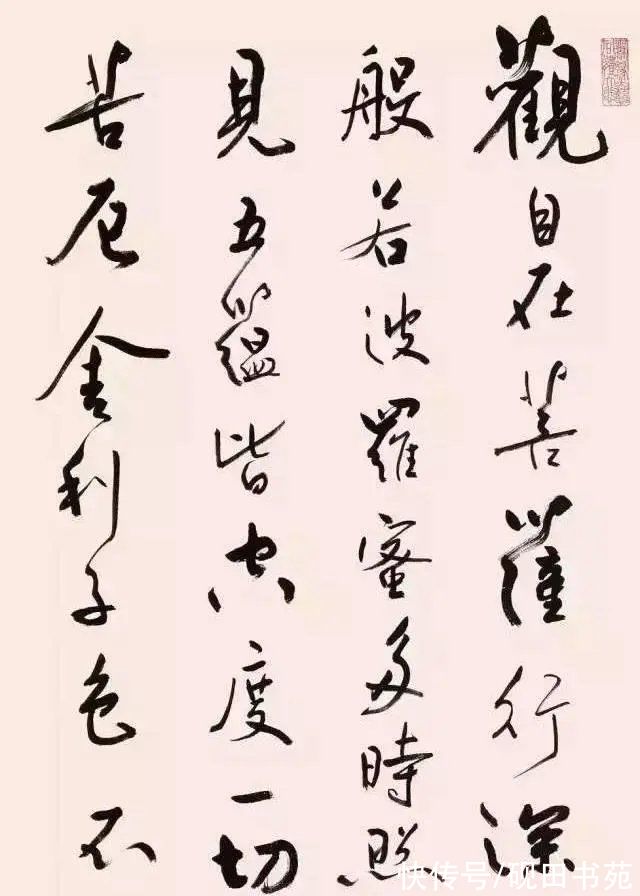 觀自在菩薩行深
般若波羅蜜多時照
見五蘊皆空度一切
苦厄舍利子色不
快传号/砚田书苑